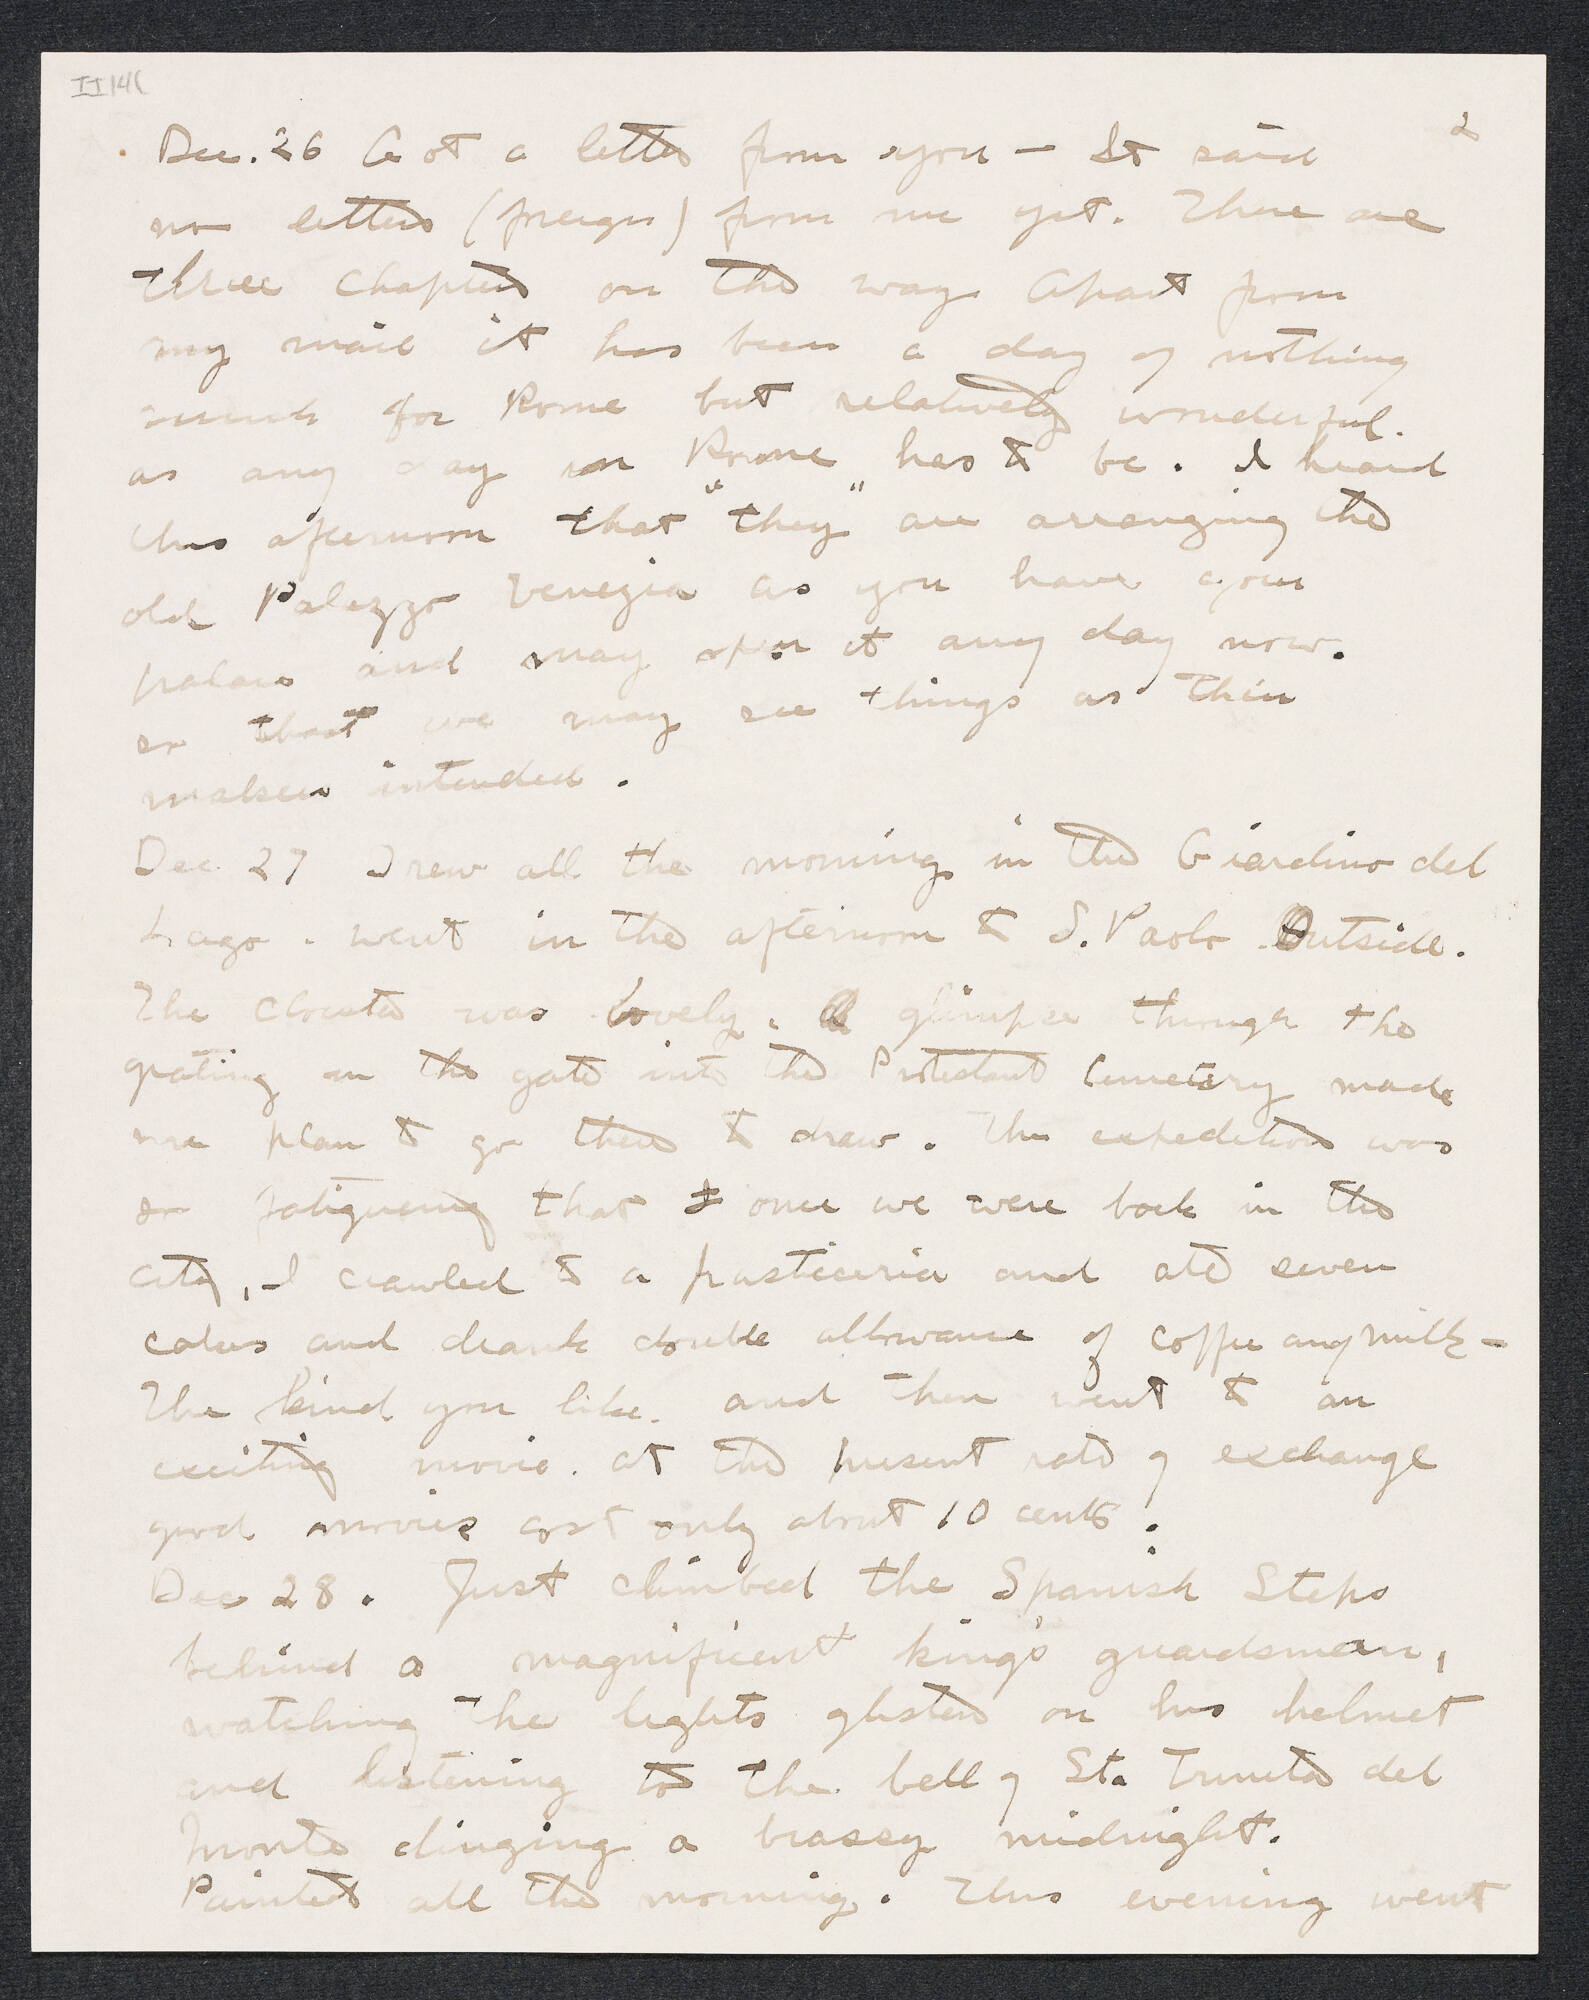 II 14(
2
Dec. 26 Got a letter from you — It said
no letters (foreign) from me yet. There are
three chapters on the way Apart from
my mail it has been a day of nothing
much for Rome but relatively wonderful.
as any day in Rome has to be. I heard
this afternoon that "they" are arranging the
old Palazzo Venezia as you have your
palace and may open it any day now.
so that we may see things as their
makers intended.
Dec 27 Drew all the morning in the Giardino del
Lago. went in the afternoon to S. Paolo Outside.
The cloister was lovely. A glimpse through the
grating in the gate into the Protestant Cemetery made
me plan to go there to draw. The expedition was
so fatiguing that I once we were back in the
city, I crawled to a pasticceria and ate seven
cakes and drank double allowance of coffee and milk —
The kind you like. and then went to an
exciting movie. at the present rate of exchange
good movies cost only about 10 cents.
Dec 28. Just climbed the Spanish Steps
behind a magnificent king's guardsman,
watching the lights glisten on his helmet
and listening to the bell of Sta Trinita del
Monte dinging a brassy midnight.
Painted all the morning. This evening went